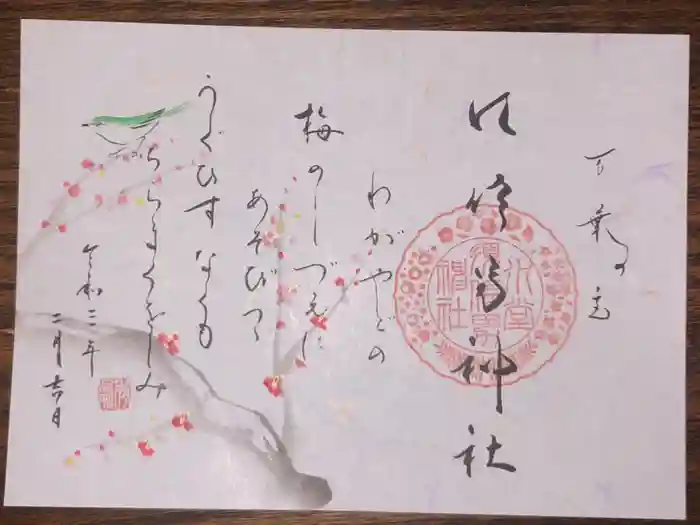 万葉の
神社
わがやどの
梅のしづえに
あそびつゝ
うぐひすなくも
ちらまくをしみ
令和三年
二月吉日